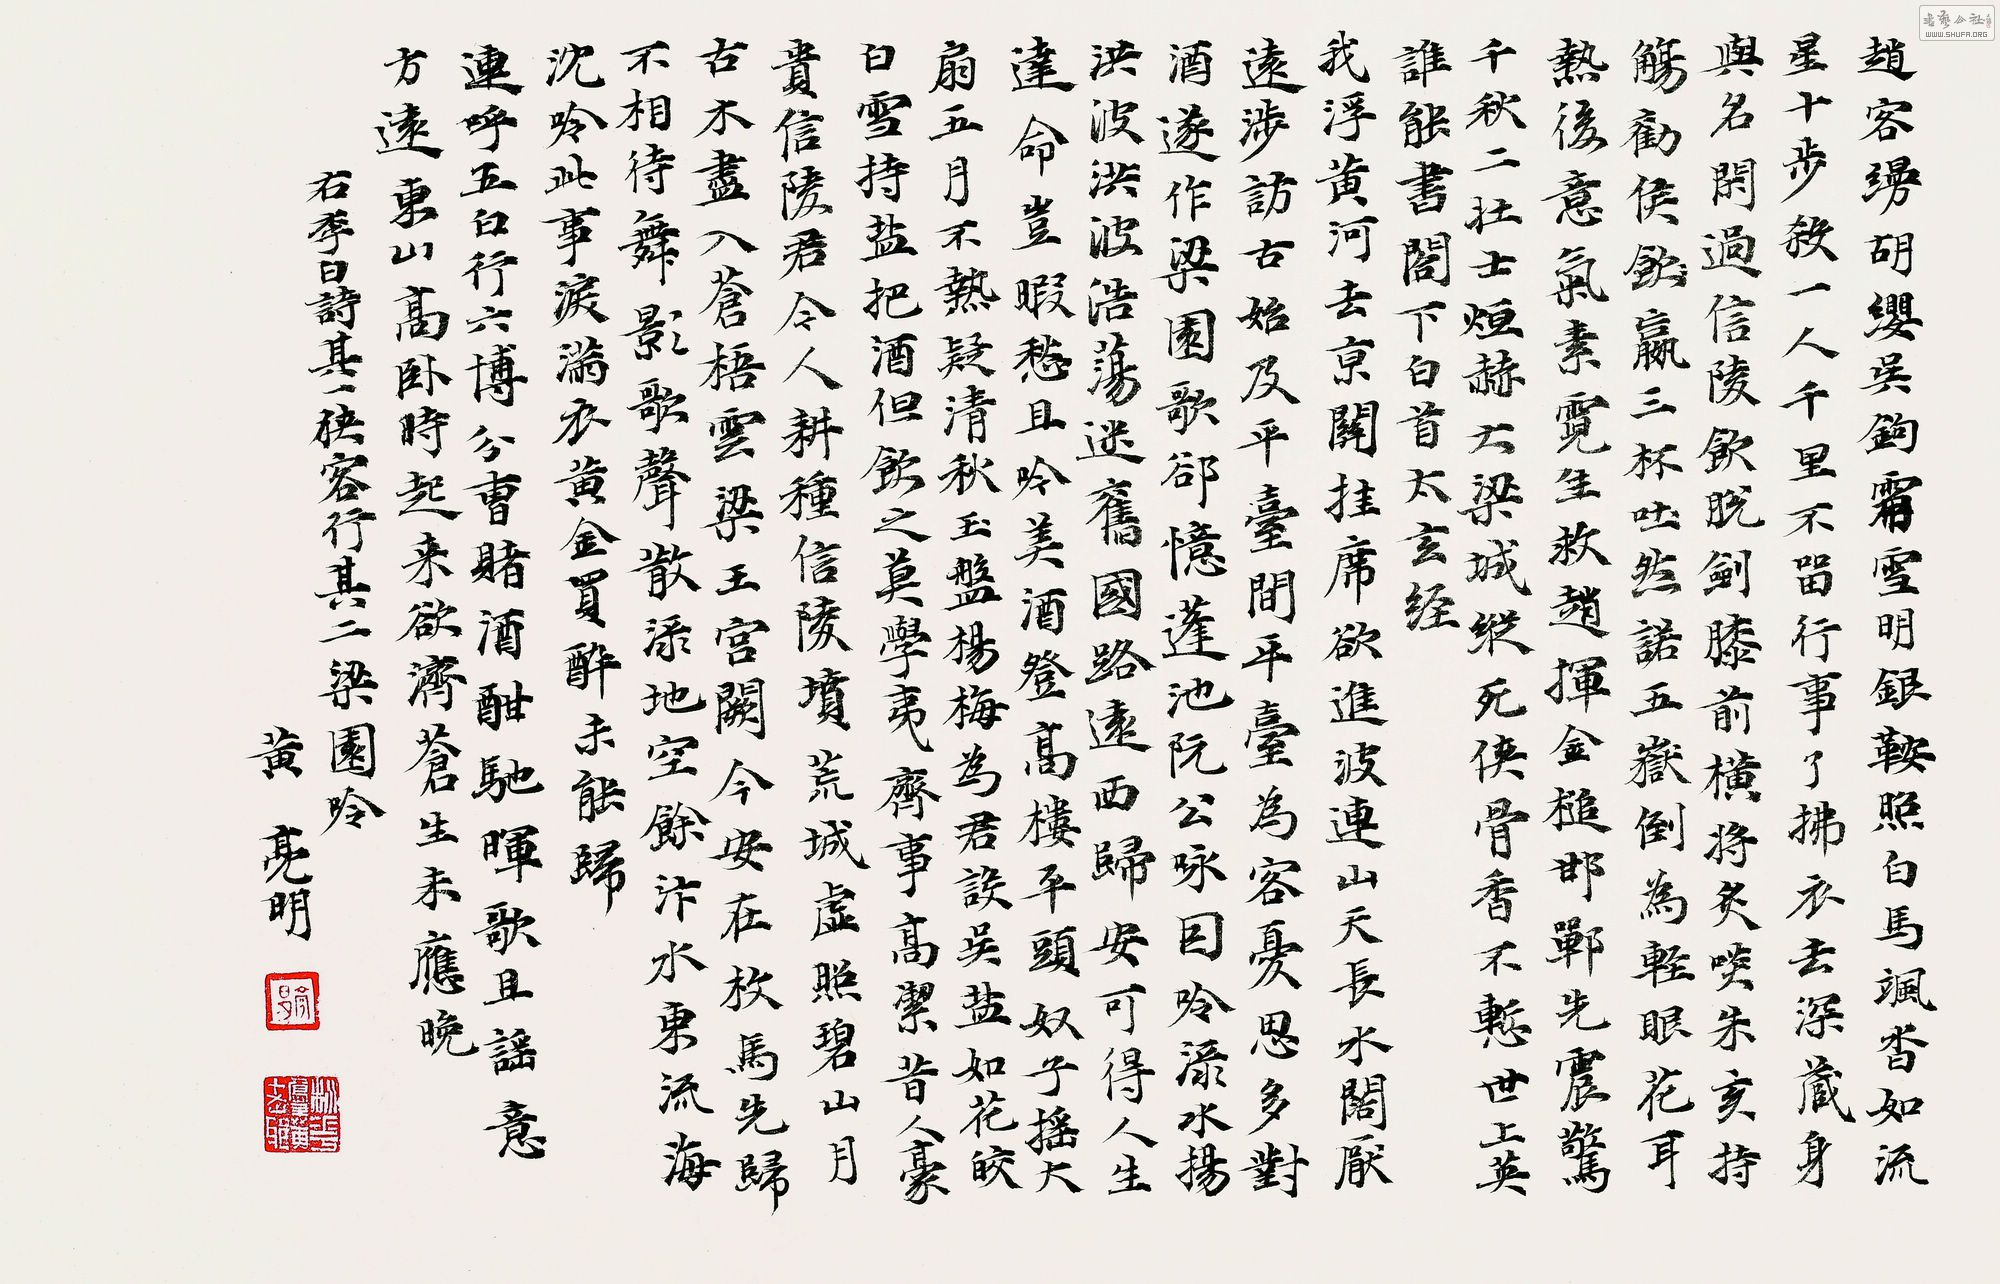 趙客縵胡纓吳鉤霜雪明銀鞍照白馬颯沓如流
星十步殺一人千里不留行事了拂衣去深藏身
與名閑過信陵飲脫劍膝前橫將炙啖朱亥持
觴勸侯飲嬴三杯吐然諾五嶽倒為輕眼花耳
熱後意氣素霓生救趙揮金槌邯鄲先震驚
千秋二壯士烜赫大梁城縱死俠骨香不慙世上英
誰能書閣下白首太玄经
我浮黄河去京闕挂席欲進波連山天長水闊厭
遠涉訪古始及平臺間平臺為客憂思多對
酒遂作梁園歌卻憶蓬池阮公咏因吟淥水揚
洪波洪波浩蕩迷舊國路遠西歸安可得人生
達命豈暇愁且吟美酒登高樓平頭奴子摇大
扇五月不熱疑清秋玉盤楊梅為君設吳盐如花皎
白雪持盐把酒但飲之莫學夷齊事高潔昔人豪
貴信陵君今人耕種信陵墳荒城虛照碧山月
古木盡入蒼梧雲梁王宮闕今安在枚馬先歸
不相待舞影歌聲散淥地空餘汴水東流海
沈吟此事淚滿衣黄金買醉未能歸
連呼五白行六博分曹賭酒酣馳暉歌且謠意
方遠東山高卧時起来欲濟蒼生未應晚
右李白詩其一俠客行其二梁園吟
黄亮明
書藝公社
WWW.SHUFA.ORG